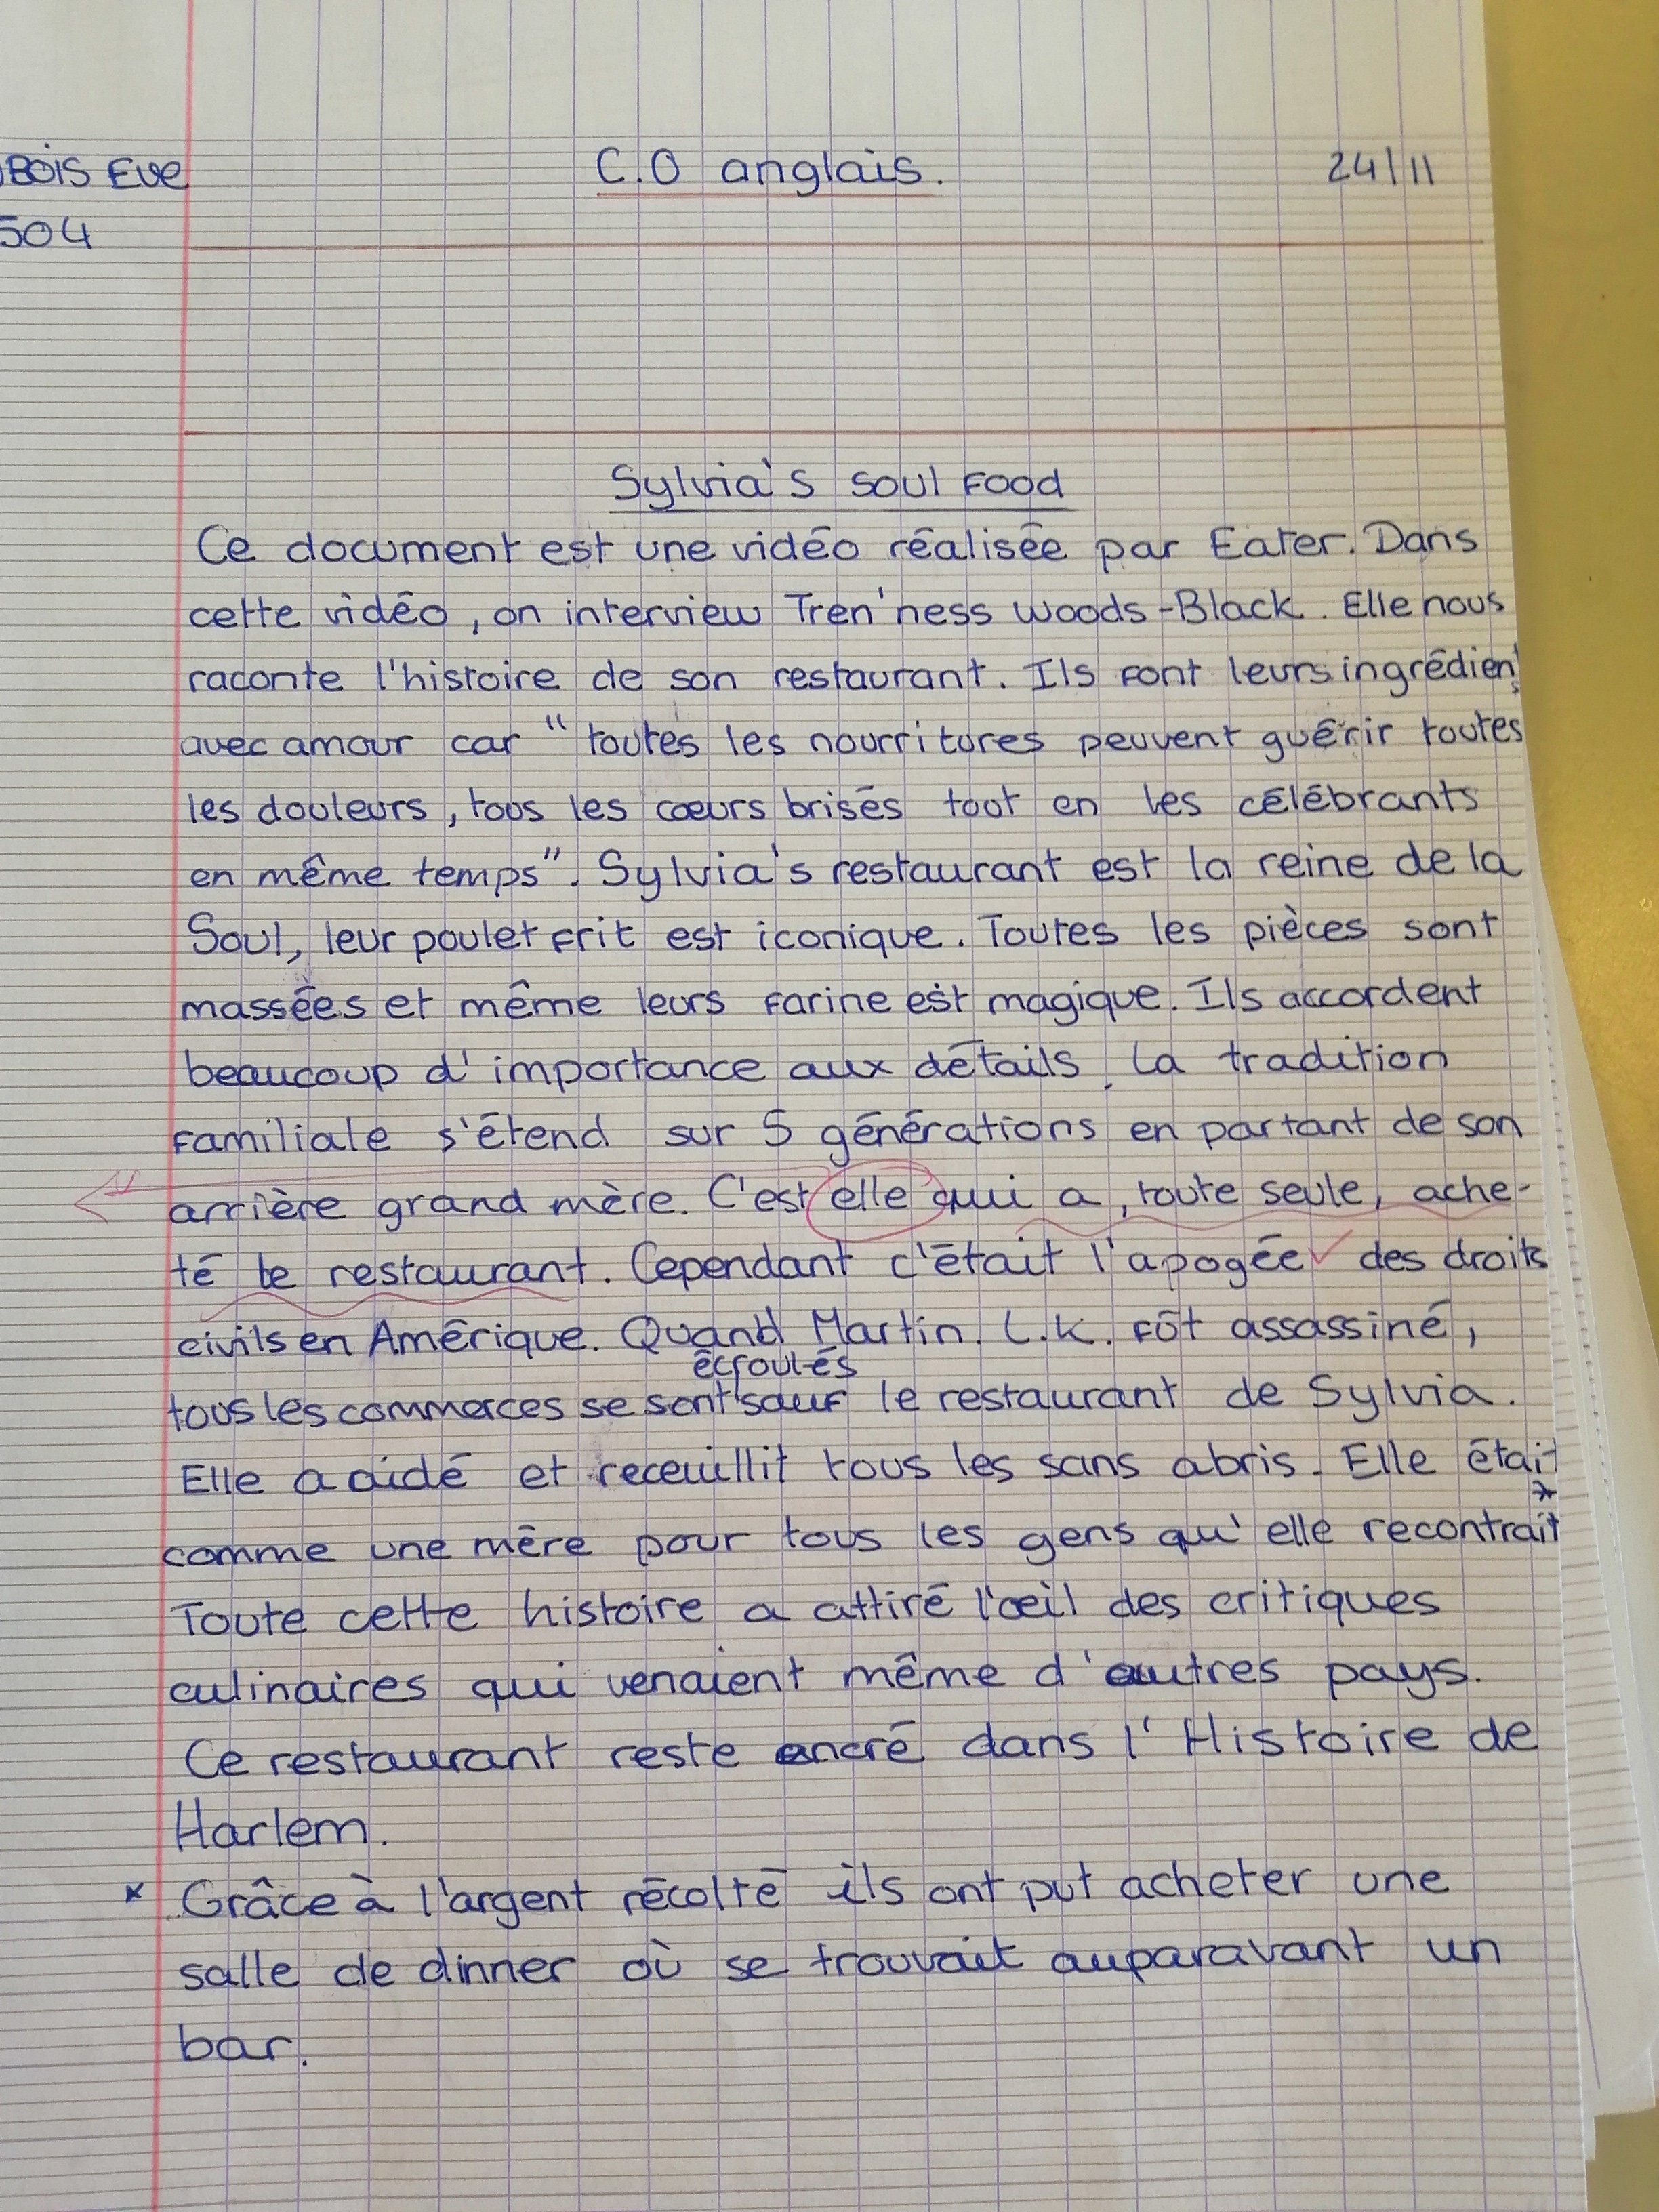 BOIS Eve C.O anglais. 24/11
504
Sylvia's soul Food
Ce document est une vidéo réalisée par Eater. Dans
cette vidéo, on interview Tren'ness woods-Black. Elle nous
raconte l'histoire de son restaurant. Ils font leurs ingrédients
avec amour car "toutes les nourritures peuvent guérir toutes
les douleurs, tous les cœurs brisés tout en les célébrants
en même temps". Sylvia's restaurant est la reine de la
Soul, leur poulet frit est iconique. Toutes les pièces sont
massées et même leurs farine est magique. Ils accordent
beaucoup d'importance aux détails. La tradition
familiale s'étend sur 5 générations en partant de son
arrière grand mère. C'est elle qui a, toute seule, ache-
té le restaurant. Cependant c'était l'apogée des droits
civils en Amérique. Quand Martin. L.K. fût assassiné,
écroulés
tous les commerces se sont sauf le restaurant de Sylvia.
Elle a aidé et receuillit tous les sans abris. Elle était
comme une mère pour tous les gens qu'elle recontrait *
Toute cette histoire a attiré l'œil des critiques
culinaires qui venaient même d'autres pays.
Ce restaurant reste encré dans l'Histoire de
Harlem.
* Grâce à l'argent récolté ils ont put acheter une
salle de dinner où se trouvait auparavant un
bar.